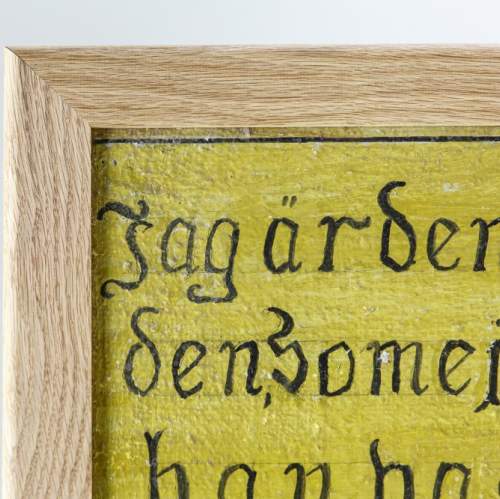 Jag är den
den, Som ej
han